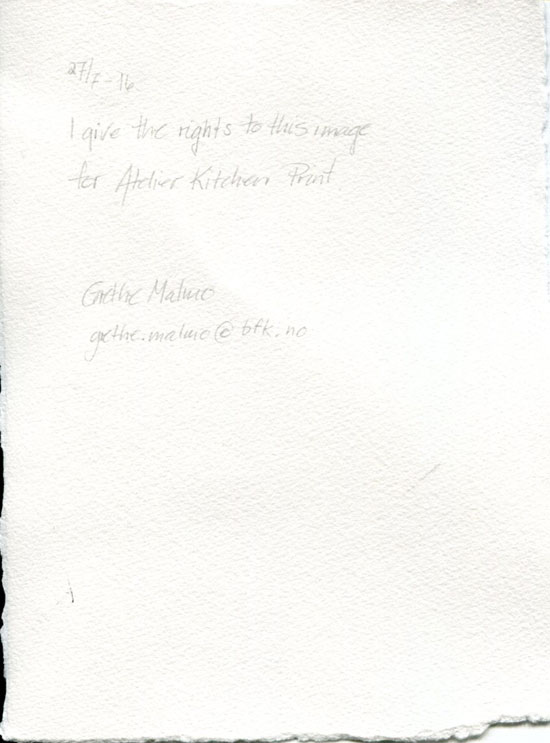 27/7-16
I give the rights to this image
for Atelier Kitchen Print
Grethe Malmo
grethe.malmo@bfk.no